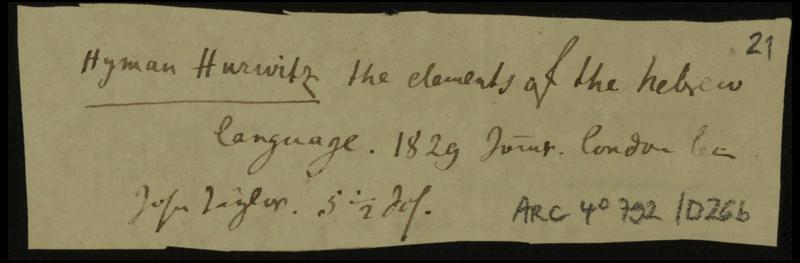 21
Hyman Hurwitz the elements of the hebrew
language. 1829 london bei
John Taylor. 5 1/2
ARC 4° 792 / D26b